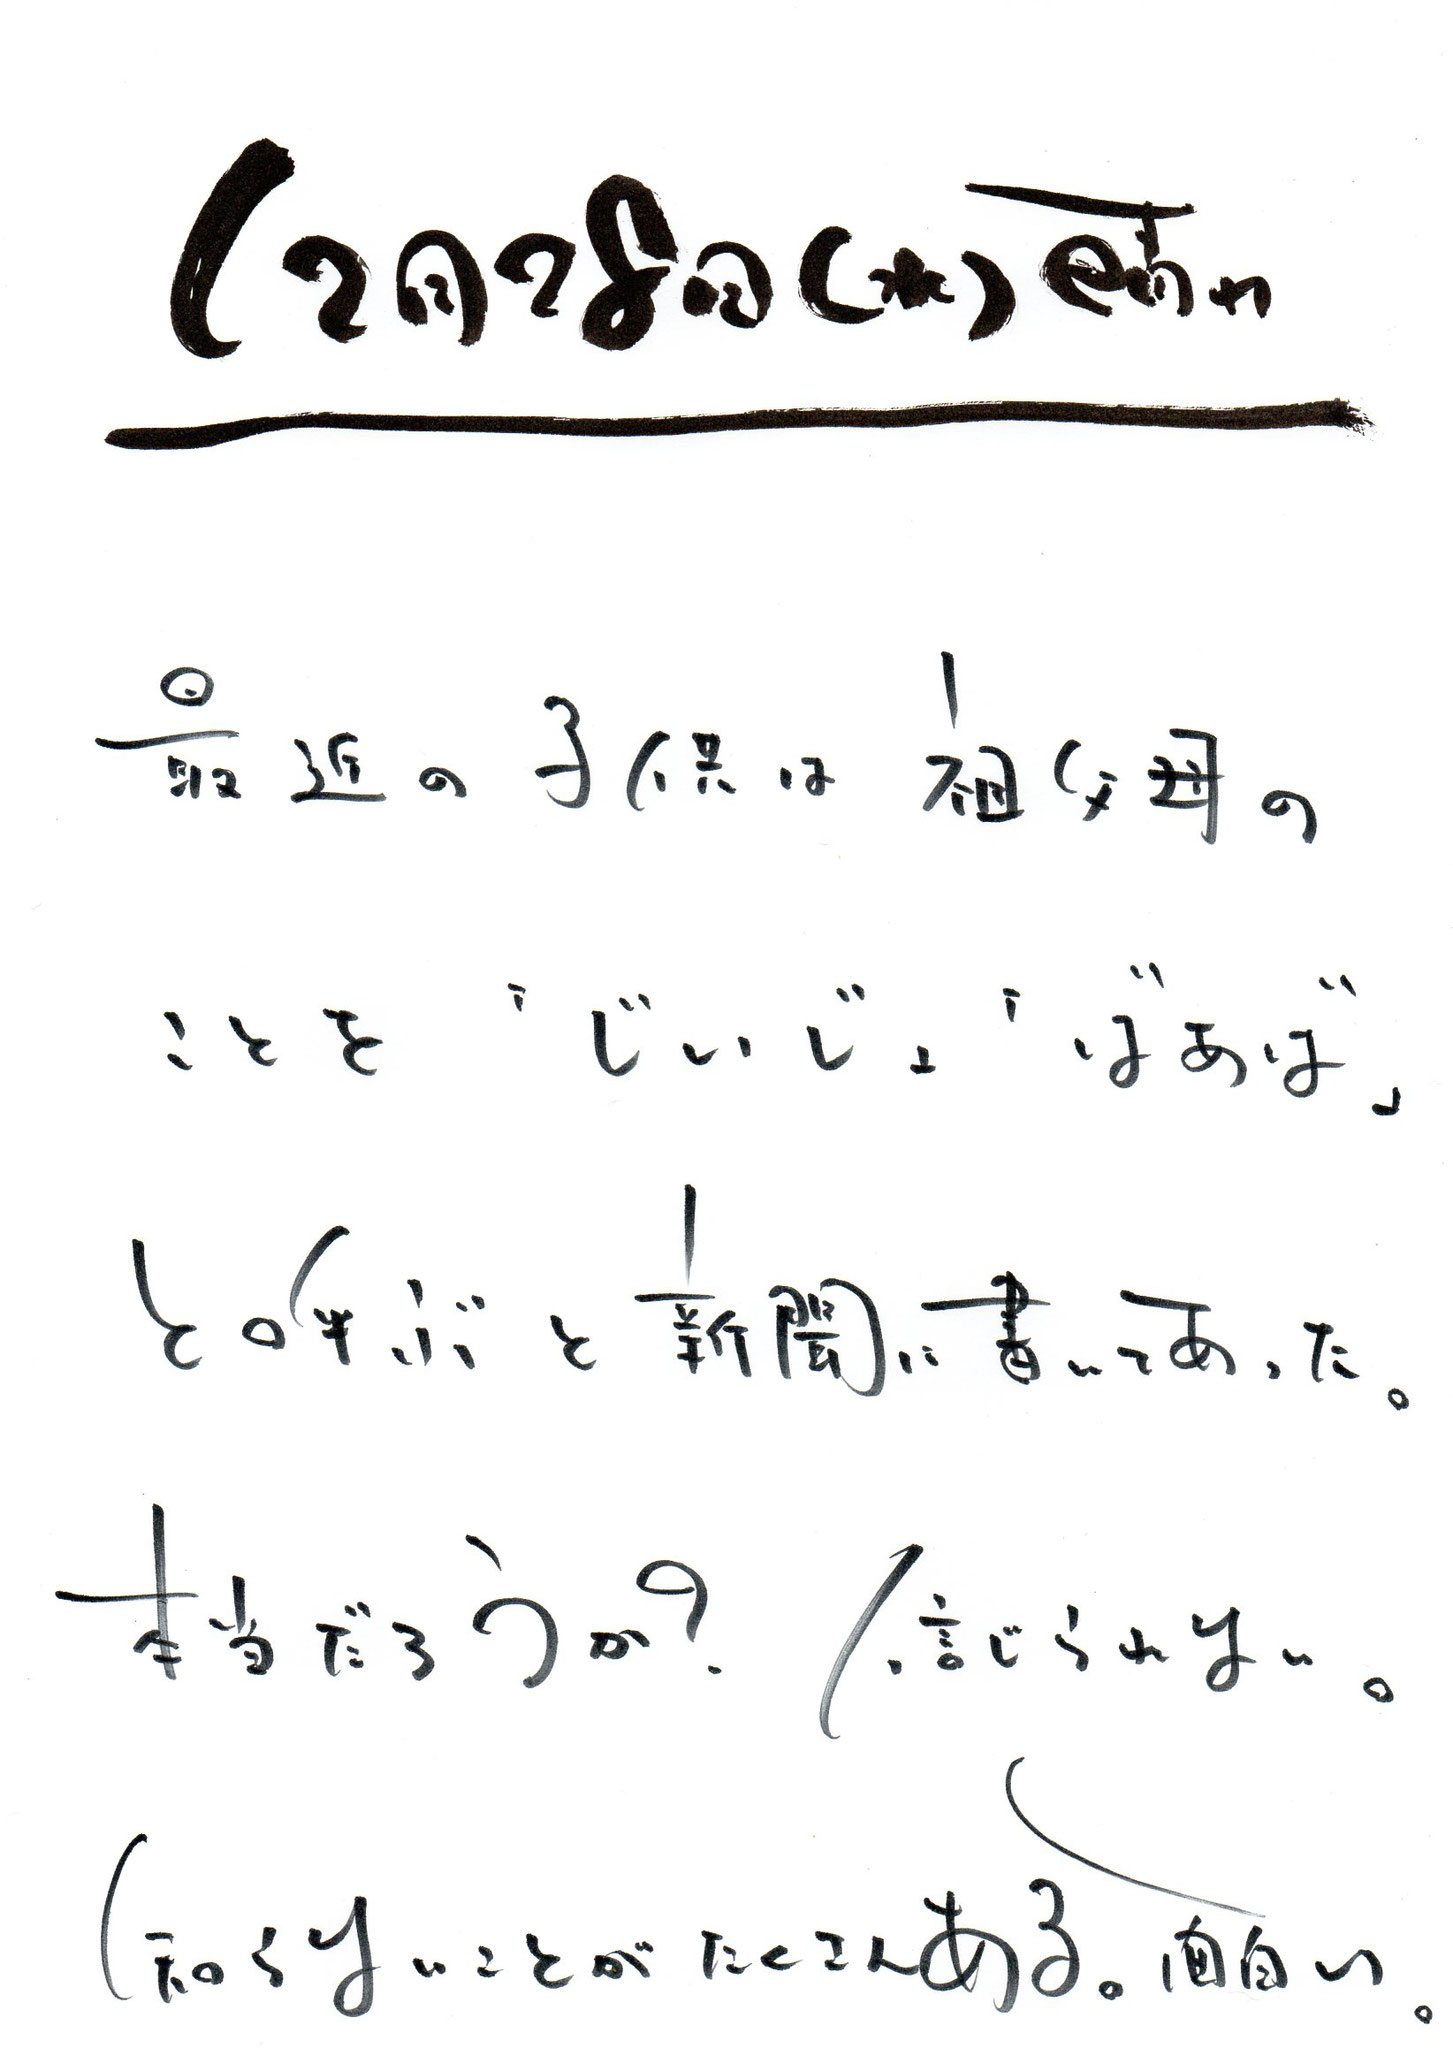 12月28日(水)晴れ
最近の子供は祖父母の
ことを「じいじ」「ばあば」
と呼ぶと新聞に書いてあった。
本当だろうか？信じられない。
知らないことがたくさんある。面白い。